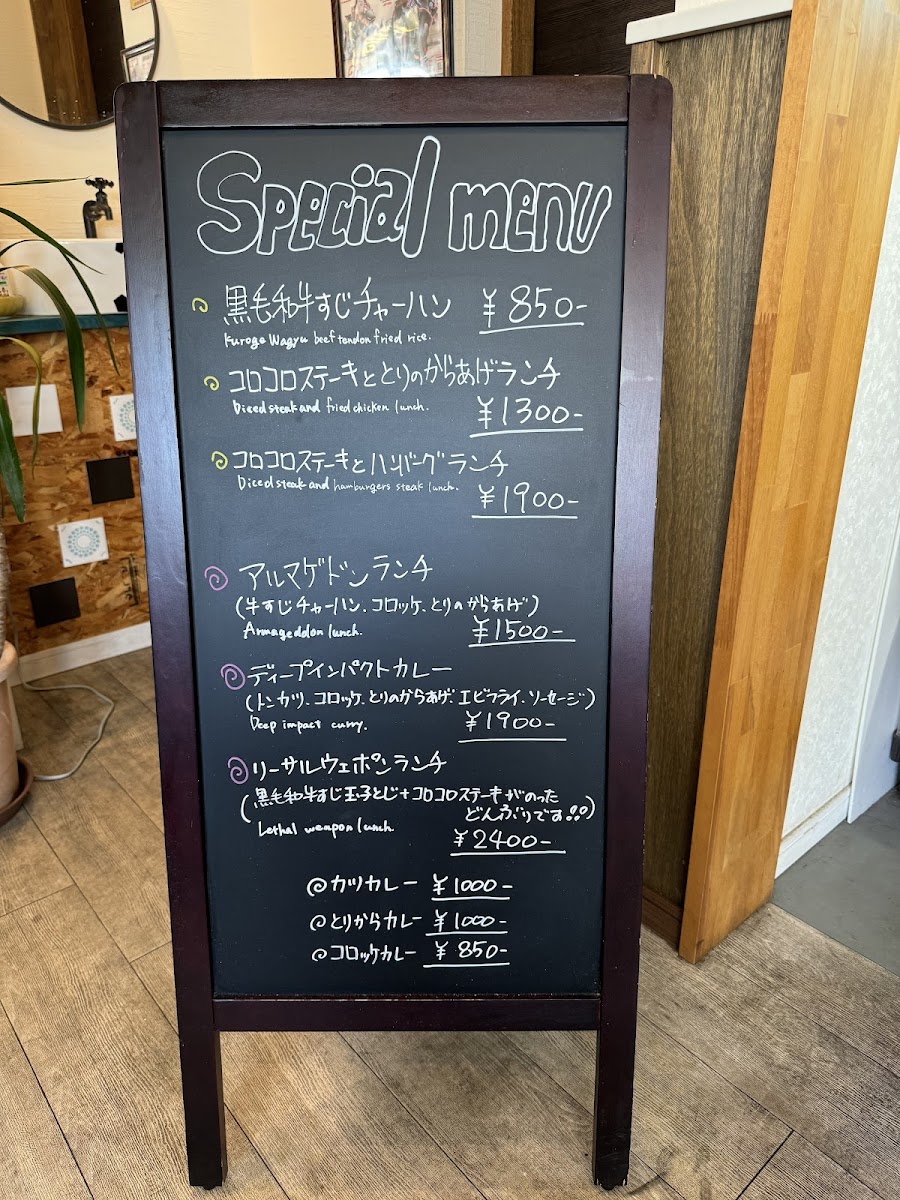 Special menu
黒毛和牛すじチャーハン ¥850-
Kuroge Wagyu beef tendon fried rice.
コロコロステーキととりのからあげランチ
Diced steak and fried chicken lunch. ¥1300-
コロコロステーキとハンバーグランチ
Diced steak and hamburgers steak lunch. ¥1900-
アルマゲドンランチ
(牛すじチャーハン、コロッケ、とりのからあげ)
Armageddon lunch. ¥1500-
ディープインパクトカレー
(トンカツ、コロッケ、とりのからあげ、エビフライ、ソーセージ)
Deep impact curry. ¥1900-
リーサルウェポンランチ
(黒毛和牛すじ玉子とじ+コロコロステーキがのった
どんぶりです!!)
Lethal weapon lunch.
¥2400-
カツカレー ¥1000-
とりからカレー ¥1000-
コロッケカレー ¥850-